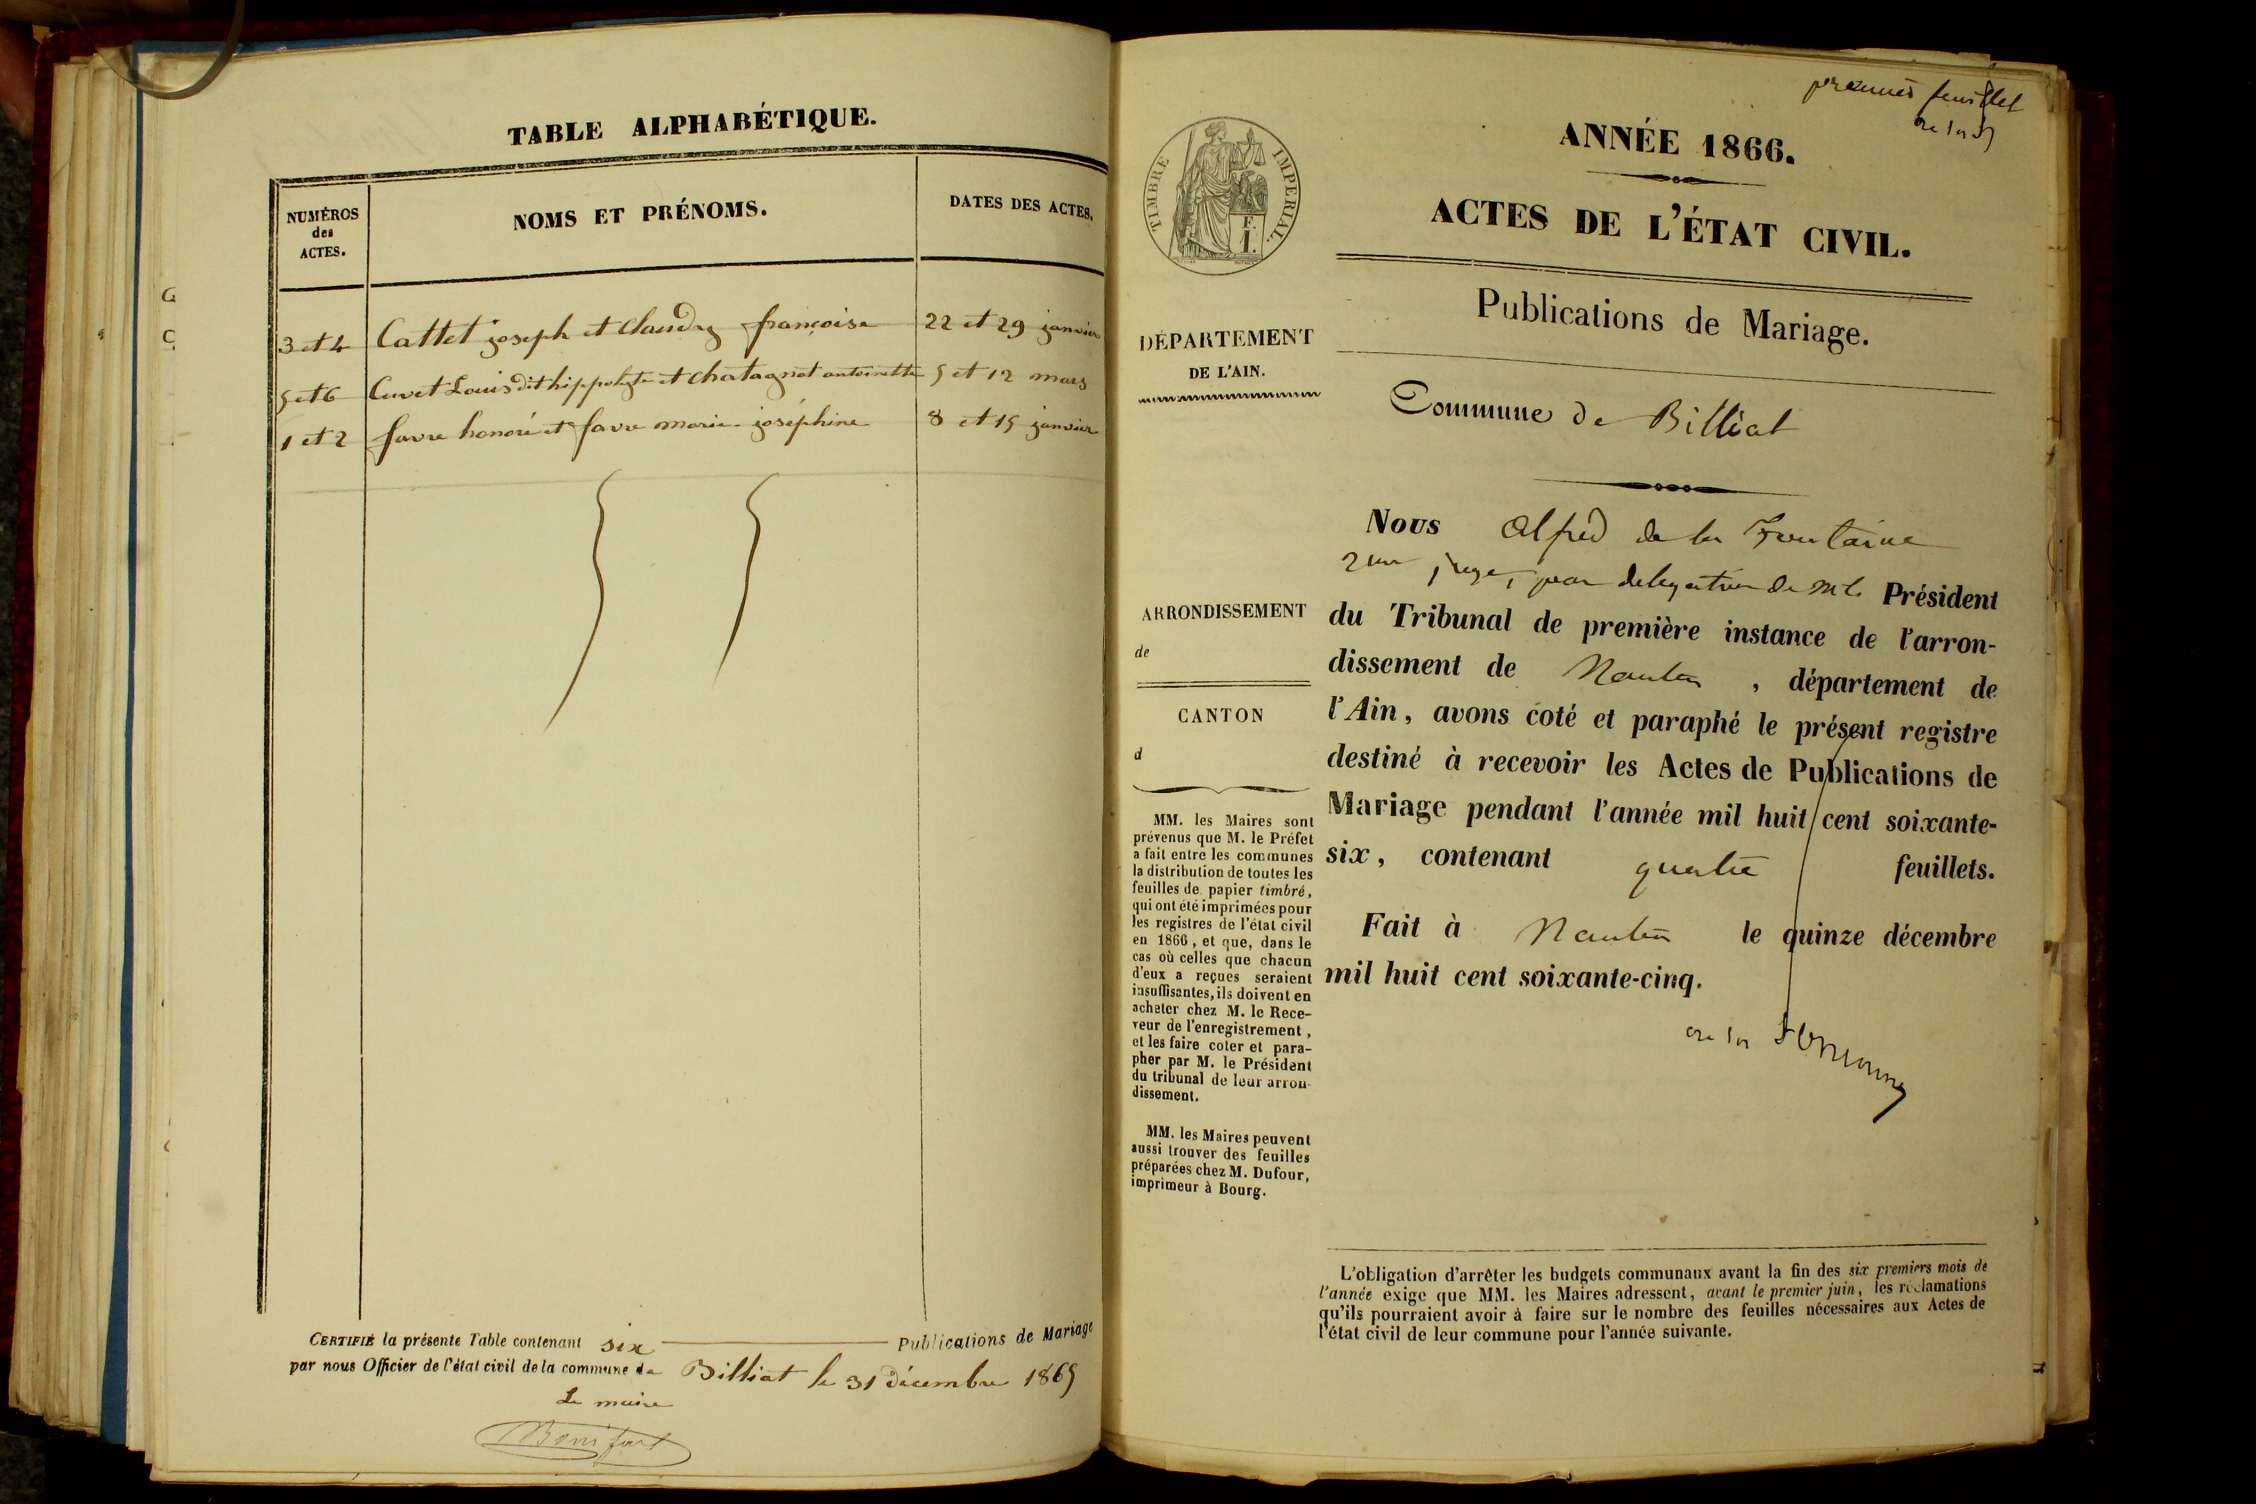 TABLE ALPHABÉTIQUE.
NUMÉROS
des
ACTES.
NOMS ET PRÉNOMS.
DATES DES ACTES.
3 et 4 Cattet joseph et Claudy françoise 22 et 29 janvier
5 et 6 Cuvet Louis dit hippolyte et Chatagnat antoinette 5 et 12 mars
1 et 2 favre honoré et favre marie-joséphine 8 et 15 janvier
CERTIFIÉ la présente Table contenant six Publications de Mariage
par nous Officier de l'état civil de la commune de Billiat le 31 décembre 1865
Le maire
premier feuillet
TIMBRE IMPÉRIAL.
ANNÉE 1866.
ACTES DE L'ÉTAT CIVIL.
Publications de Mariage.
Commune de Billiat
DÉPARTEMENT
DE L'AIN.
ARRONDISSEMENT
de
CANTON
d
MM. les Maires sont
prévenus que M. le Préfet
a fait entre les communes
la distribution de toutes les
feuilles de papier timbré,
qui ont été imprimées pour
les registres de l'état civil
en 1866, et que, dans le
cas où celles que chacun
d'eux a reçues seraient
insuffisantes, ils doivent en
acheter chez M. le Rece-
veur de l'enregistrement,
et les faire coter et para-
pher par M. le Président
du tribunal de leur arron-
dissement.
MM. les Maires peuvent
aussi trouver des feuilles
préparées chez M. Dufour,
imprimeur à Bourg.
Nous Alfred de la Fontaine
juge, par delegation de Mr le Président
du Tribunal de première instance de l'arron-
dissement de Nantua, département de
l'Ain, avons coté et paraphé le présent registre
destiné à recevoir les Actes de Publications de
Mariage pendant l'année mil huit cent soixante-
six, contenant quatre feuillets.
Fait à Nantua le quinze décembre
mil huit cent soixante-cinq.
L'obligation d'arrêter les budgets communaux avant la fin des six premiers mois de
l'année exige que MM. les Maires adressent, avant le premier juin, les réclamations
qu'ils pourraient avoir à faire sur le nombre des feuilles nécessaires aux Actes de
l'état civil de leur commune pour l'année suivante.